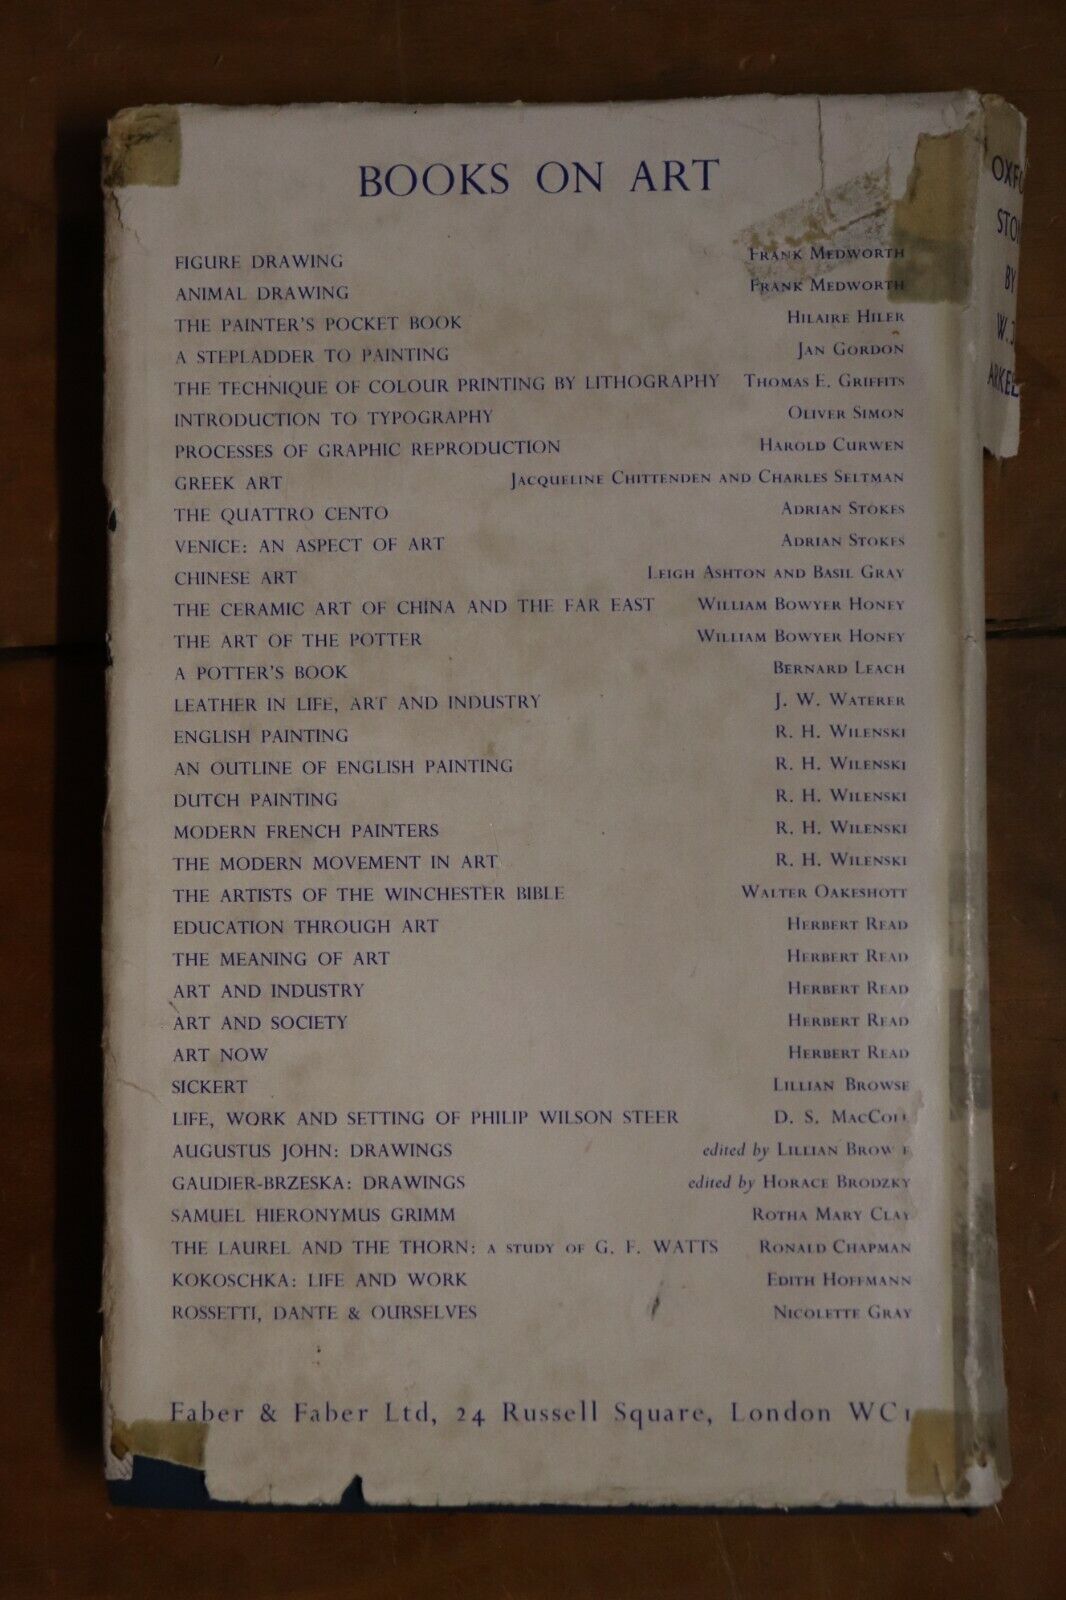 BOOKS ON ART
FIGURE DRAWING FRANK MEDWORTH
ANIMAL DRAWING FRANK MEDWORTH
THE PAINTER'S POCKET BOOK HILAIRE HILER
A STEPLADDER TO PAINTING JAN GORDON
THE TECHNIQUE OF COLOUR PRINTING BY LITHOGRAPHY THOMAS E. GRIFFITS
INTRODUCTION TO TYPOGRAPHY OLIVER SIMON
PROCESSES OF GRAPHIC REPRODUCTION HAROLD CURWEN
GREEK ART JACQUELINE CHITTENDEN AND CHARLES SELTMAN
THE QUATTRO CENTO ADRIAN STOKES
VENICE: AN ASPECT OF ART ADRIAN STOKES
CHINESE ART LEIGH ASHTON AND BASIL GRAY
THE CERAMIC ART OF CHINA AND THE FAR EAST WILLIAM BOWYER HONEY
THE ART OF THE POTTER WILLIAM BOWYER HONEY
A POTTER'S BOOK BERNARD LEACH
LEATHER IN LIFE, ART AND INDUSTRY J. W. WATERER
ENGLISH PAINTING R. H. WILENSKI
AN OUTLINE OF ENGLISH PAINTING R. H. WILENSKI
DUTCH PAINTING R. H. WILENSKI
MODERN FRENCH PAINTERS R. H. WILENSKI
THE MODERN MOVEMENT IN ART R. H. WILENSKI
THE ARTISTS OF THE WINCHESTER BIBLE WALTER OAKESHOTT
EDUCATION THROUGH ART HERBERT READ
THE MEANING OF ART HERBERT READ
ART AND INDUSTRY HERBERT READ
ART AND SOCIETY HERBERT READ
ART NOW HERBERT READ
SICKERT LILLIAN BROWSE
LIFE, WORK AND SETTING OF PHILIP WILSON STEER D. S. MACCOLL
AUGUSTUS JOHN: DRAWINGS edited by LILLIAN BROWSE
GAUDIER-BRZESKA: DRAWINGS edited by HORACE BRODZKY
SAMUEL HIERONYMUS GRIMM ROTHA MARY CLAY
THE LAUREL AND THE THORN: A STUDY OF G. F. WATTS RONALD CHAPMAN
KOKOSCHKA: LIFE AND WORK EDITH HOFFMANN
ROSSETTI, DANTE & OURSELVES NICOLETTE GRAY
Faber & Faber Ltd, 24 Russell Square, London WC1
OXFO
STON
BY
W.J.
ARKEL